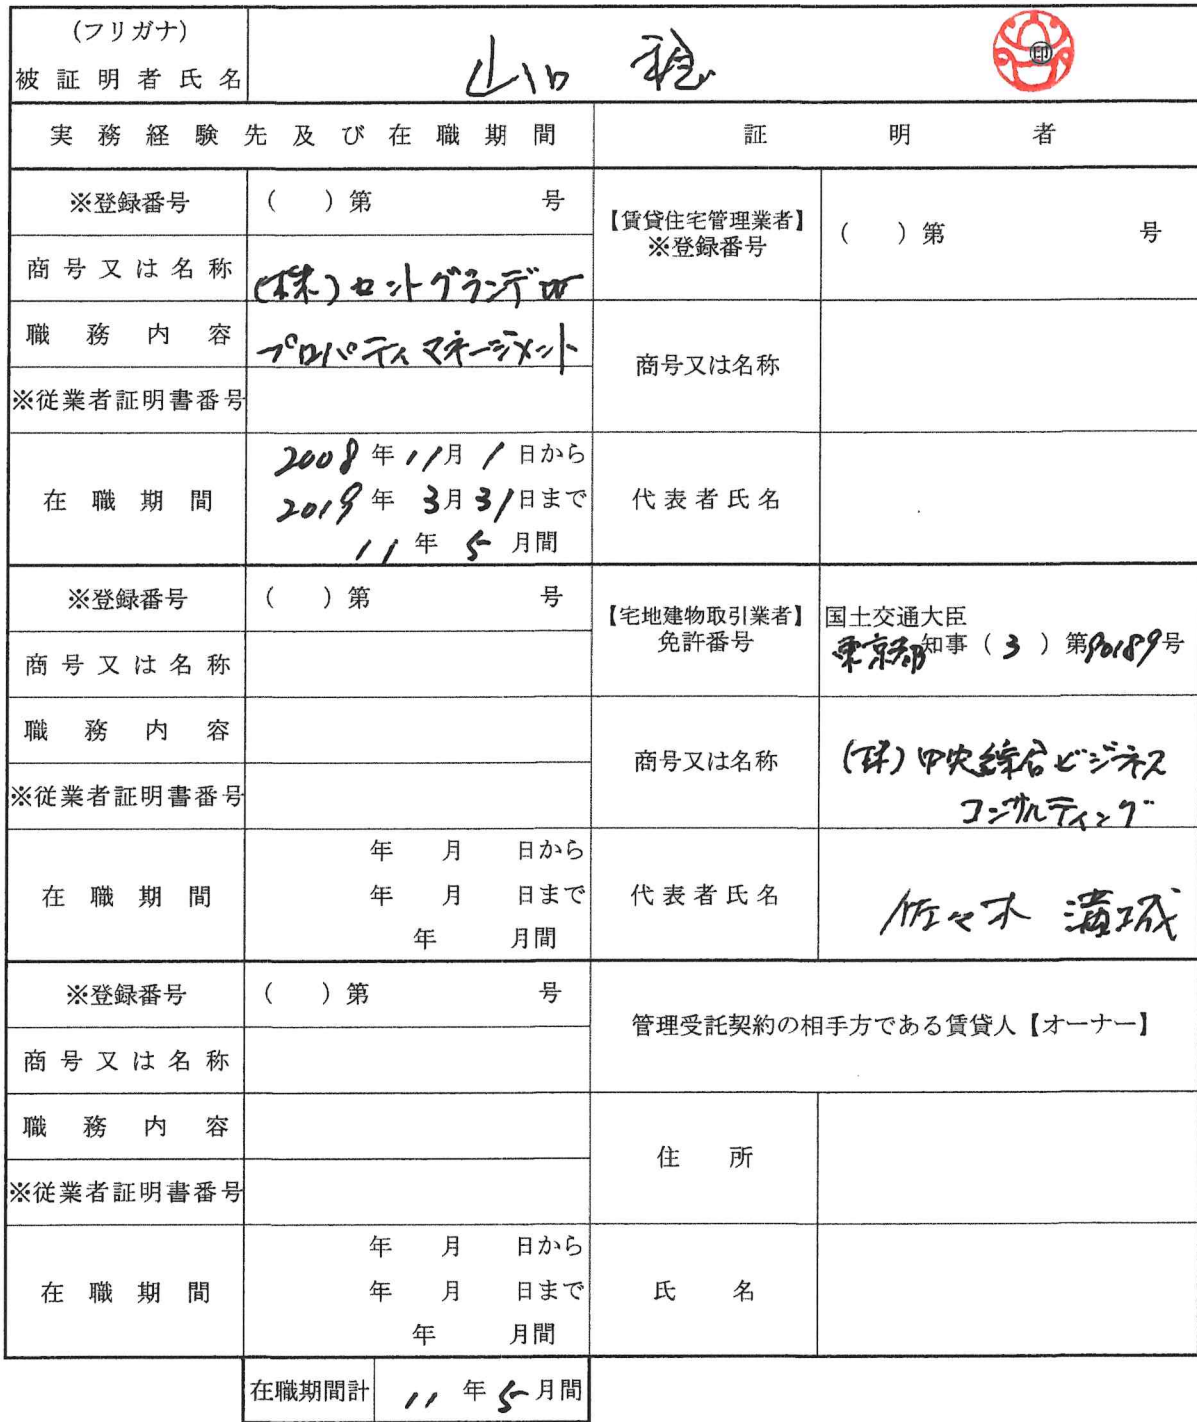 (フリガナ)
被証明者氏名 山口 穂 ㊞
実務経験先及び在職期間 証明者
※登録番号 ( )第 号
【賃貸住宅管理業者】
※登録番号 ( )第 号
商号又は名称 (株)セントグランデ
職務内容 プロパティマネージメント
商号又は名称
※従業者証明書番号
在職期間
2008年11月1日から
2019年3月31日まで
11年5月間
代表者氏名
※登録番号 ( )第 号
【宅地建物取引業者】
免許番号
国土交通大臣
東京都知事(3)第90189号
商号又は名称
職務内容
商号又は名称 (株)中央綜合ビジネス
コンサルティング
※従業者証明書番号
在職期間
年 月 日から
年 月 日まで
年 月間
代表者氏名 佐々木 満城
※登録番号 ( )第 号
管理受託契約の相手方である賃貸人【オーナー】
商号又は名称
職務内容
住所
※従業者証明書番号
在職期間
年 月 日から
年 月 日まで
年 月間
氏名
在職期間計 11年5月間